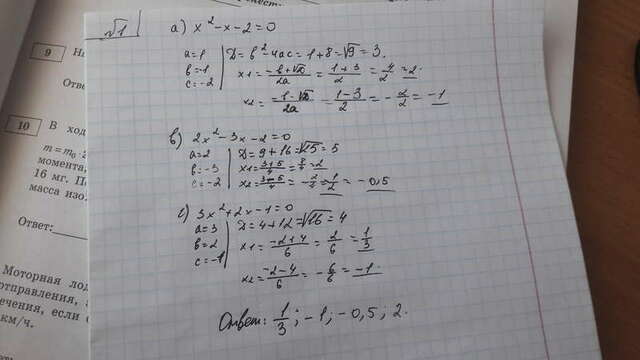 √1 а) x² - x - 2 = 0
a = 1 | D = b² - 4ac = 1 + 8 = √9 = 3
b = -1 | x1 = (-b + √D)/2a = (1 + 3)/2 = 4/2 = 2
c = -2
x2 = (-b - √D)/2a = (1 - 3)/2 = -2/2 = -1
в) 2x² - 3x - 2 = 0
a = 2 | D = 9 + 16 = √25 = 5
b = -3 | x1 = (3 + 5)/4 = 8/4 = 2
c = -2 | x2 = (3 - 5)/4 = -2/4 = -1/2 = -0,5
с) 3x² + 2x - 1 = 0
a = 3 | D = 4 + 12 = √16 = 4
b = 2 | x1 = (-2 + 4)/6 = 2/6 = 1/3
c = -1
x2 = (-2 - 4)/6 = -6/6 = -1
Ответ: 1/3; -1; -0,5; 2.
9
10
В ход
m = m₀
момента,
16 мг.
масса изо
Ответ:
Моторная лод
отправления,
ечения, если
км/ч.